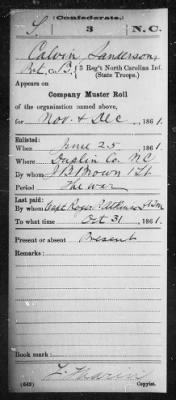 (Confederate.)
S. 3 N.C.
Calvin Sanderson,
Pvt, Co. B, 3 Reg't North Carolina Inf.
(State Troops.)
Appears on
Company Muster Roll
of the organization named above,
for Nov. & Dec, 1861.
Enlisted:
When June 25, 1861.
Where Duplin Co. NC
By whom Brown 1 Lt
Period The war
Last paid:
By whom Capt Roger
To what time Oct 31, 1861.
Present or absent Present
Remarks:
Book mark:
(642) Copyist.